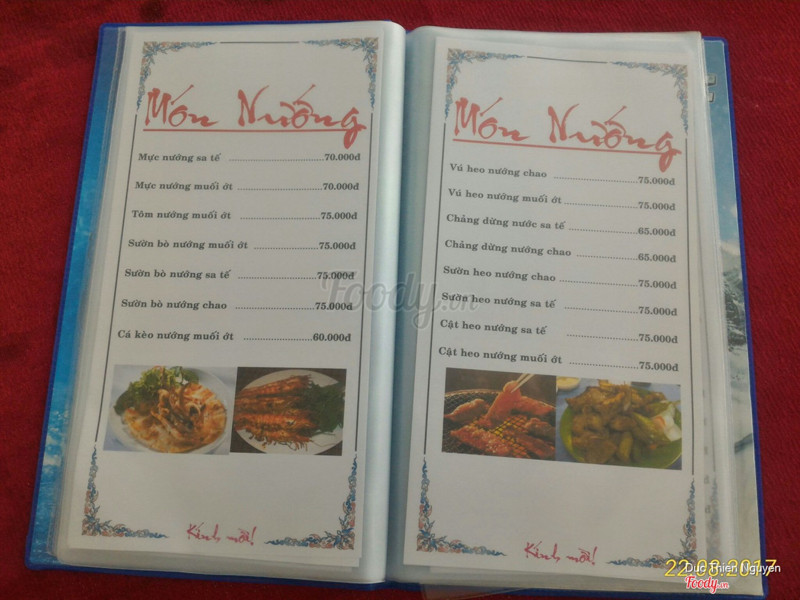 Món Nướng
Mực nướng sa tế ........................70.000đ
Mực nướng muối ớt ........................70.000đ
Tôm nướng muối ớt ........................75.000đ
Sườn bò nướng muối ớt ..................75.000đ
Sườn bò nướng sa tế .....................75.000đ
Sườn bò nướng chao .....................75.000đ
Cá kèo nướng muối ớt ..................60.000đ
Kính mời!
Món Nướng
Vú heo nướng chao ........................75.000đ
Vú heo nướng muối ớt ...................75.000đ
Chảng dừng nước sa tế ..................65.000đ
Chảng dừng nướng chao .................65.000đ
Sườn heo nướng chao ....................75.000đ
Sườn heo nướng sa tế ....................75.000đ
Cật heo nướng sa tế .......................75.000đ
Cật heo nướng muối ớt ..................75.000đ
Kính mời!
Foody.vn
22.08.2017
Duc Thien Nguyen
Foody.vn